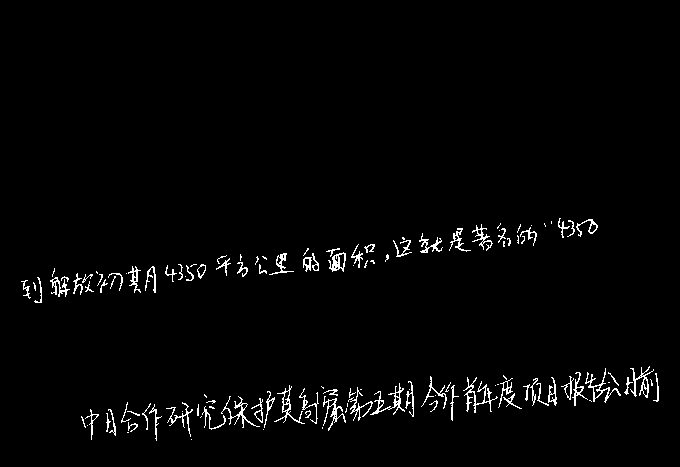 到解放初期月4350平方公里的面积,这就是著名的“4350
中日合作研究保护莫高窟第五期合作首年度项目报告会日前